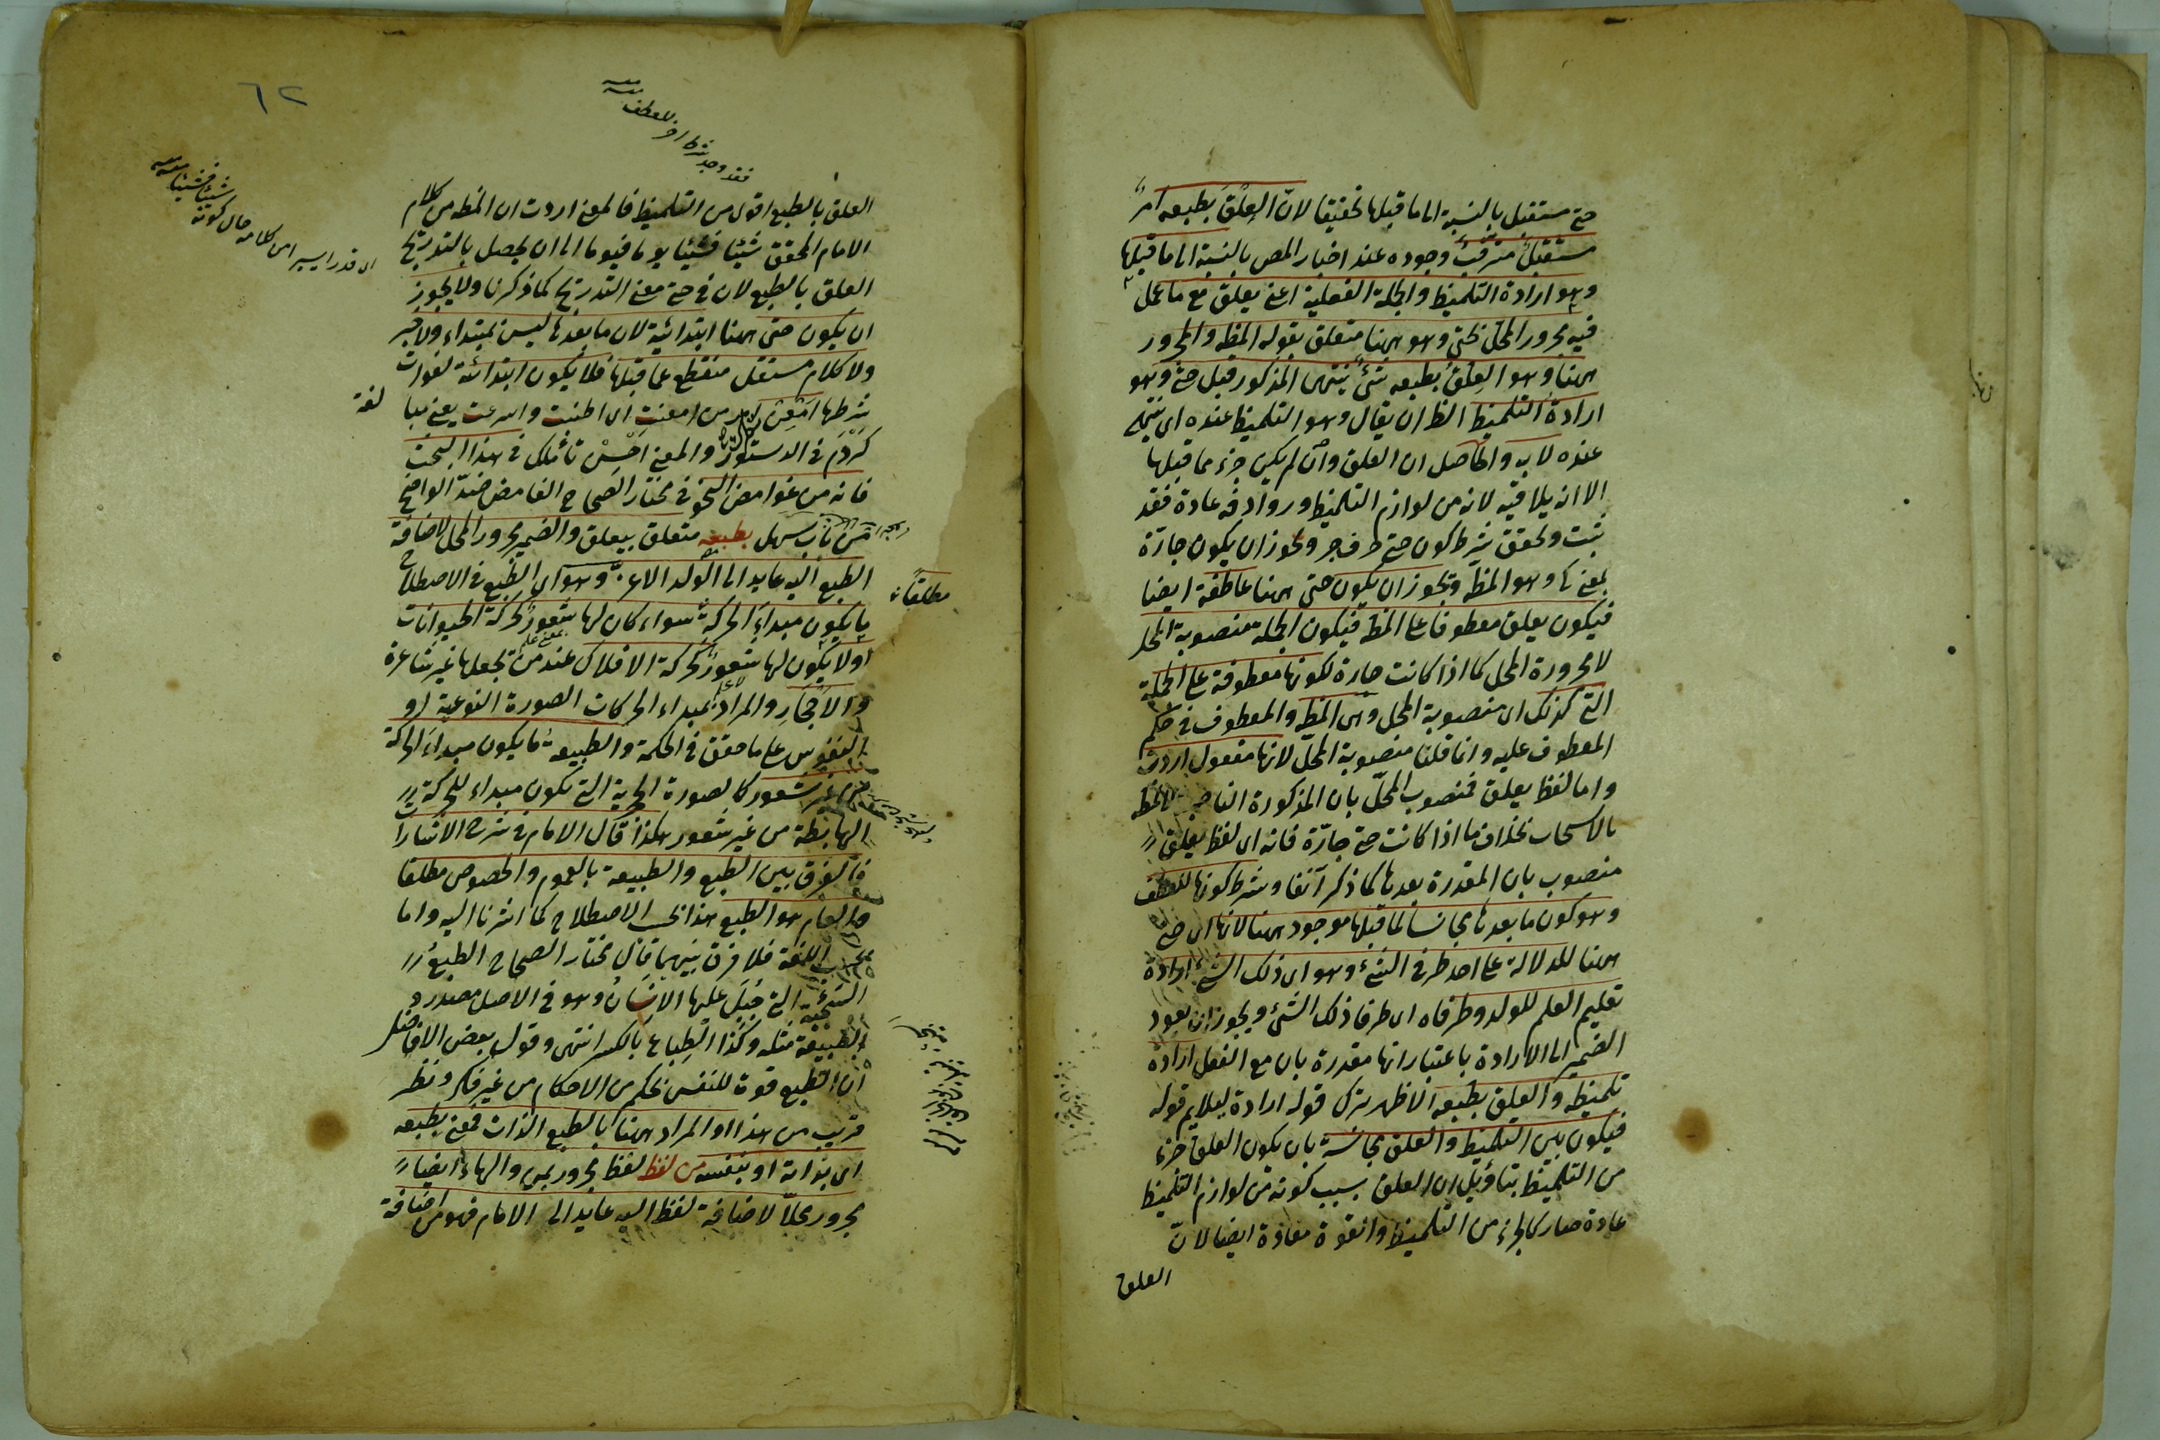 حتى مستقبل بالنسبة الى ما قبلها تحقيقا لان العلق بطبعه امر
مستقبل مترقب وجوده عند اخبار المص بالنسبة الى ما قبلها
وهو ارادة التلميظ والجملة الفعلية اعني يعلق مع ما عمل
فيه مجرور المحل بحتى وهو ههنا متعلق بقوله المظه والمجرور
ههنا وهو العلق بطبعه شئ ينتهى المذكور قبل حتى وهو
ارادة التلميظ الظ ان يقال وهو التلميظ عنده اى ينتهى
عنده لا به والحاصل ان العلق وان لم يكن جزء مما قبلها
الا انه يلاقيه لانه من لوازم التلميظ وروادفه عادة فقد
ثبت وتحقق شرط كون حتى حرف جر ويجوز ان يكون جارة
بمعنى كى وهو المظه ويجوز ان يكون حتى ههنا عاطفة ايضا
فيكون يعلق معطوفا على المظه فيكون الجملة منصوبة المحل
لا مجرورة المحل كما اذا كانت جارة لكونها معطوفة على الجملة
التى كذلك اى منصوبة المحل وهى المظه والمعطوف فى حكم
المعطوف عليه وانما قلنا منصوبة المحل لانها مفعول اردت
واما لفظ يعلق فمنصوب المحل بان المذكورة الناصبة المظه
بالاسحاب بخلاف ما اذا كانت حتى جارة فانه اى لفظ يعلق
منصوب بان المقدرة بعدها كما ذكر آنفا وشرط كونها للعطف
وهو كون ما بعدها مجانسا لما قبلها موجود ههنا لانها اى حتى
ههنا للدلالة على احد طرفى الشئ وهو اى ذلك الشئ ارادة
تعليم العلم للولد وطرفاه اى طرفا ذلك الشئ ويجوز ان يعود
الضمير الى الارادة باعتبار انها مقدرة بان مع الفعل ارادة
تلميظه والعلق بطبعه الاظهر ترك قوله ارادة ليلايم قوله
فيكون بين التلميظ والعلق مجانسة بان يكون العلق جزء
من التلميظ بتاويل ان العلق بسبب كونه من لوازم التلميظ
عادة صار كالجزء من التلميظ وانقوة مفادة ايضا لان
العلق
٦٢
فقد وجد شرط اخر للعطف
العلق بالطبع اقول من التلميظ فالمعنى اردت ان المظه من كلام
الامام المحقق شيئا فشيئا يوما فيوما الى ان يحصل بالتدريج
اى قدرا يسيرا من كلامه حال كونه شيئا فشيئا
العلق بالطبع لان فى حتى معنى التدريج كما ذكرنا ولا يجوز
ان يكون حتى ههنا ابتدائية لان ما بعدها ليس بمبتداء ولا خبر
ولا كلام مستقل منقطع عما قبلها فلا يكون ابتدائية لفوات
شرطها امعن امر من امعنت اى اطنبت واسرعت يعنى
لغة
كردم فى الدستور والمعنى احسن تاملك فى هذا البحث
فانه من غوامض النحو فى مختار الصحاح الغامض ضد الواضح
من باب سهل بطبعه متعلق بيعلق والضمير مجرور المحل لاضافة
الطبع اليه عايد الى الولد الاعز وهو اى الطبع فى الاصطلاح
مطلقا
ما يكون مبداء الحركة سواء كان لها شعور كحركة الحيوانات
اولا يكون لها شعور كحركة الافلاك عند من تجعلها غير شاعرة
والاحجار والمراد بمبداء الحركات الصورة النوعية او
النفوس على ما حقق فى الحكمة والطبيعة ما يكون مبداء الحركة
من غير شعور كالصورة الحجرية التى تكون مبداء للحركة
الهابطة من غير شعور هكذا قال الامام فى شرح الاشارات
فالفرق بين الطبع والطبيعة بالعموم والخصوص مطلقا
والعام هو الطبع هذا بحسب الاصطلاح كما اشرنا اليه واما
بحسب اللغة فلا فرق بينهما قال مختار الصحاح الطبع
السجية التى جبل عليها الانسان وهو فى الاصل مصدر
الطبيعة مثله وكذا الطباع بالكسر انتهى وقول بعض الافاضل
ان الطبع قوة للنفس تحكم من الاحكام من غير فكر ونظر
قريب من هذا او المراد ههنا بالطبع الذات فمعنى بطبعه
اى بذاته او بنفسه من لفظ لفظ مجرور بمن والهاء ايضا
مجرور محلا لاضافة لفظ اليه عايد الى الامام فهو من اضافة